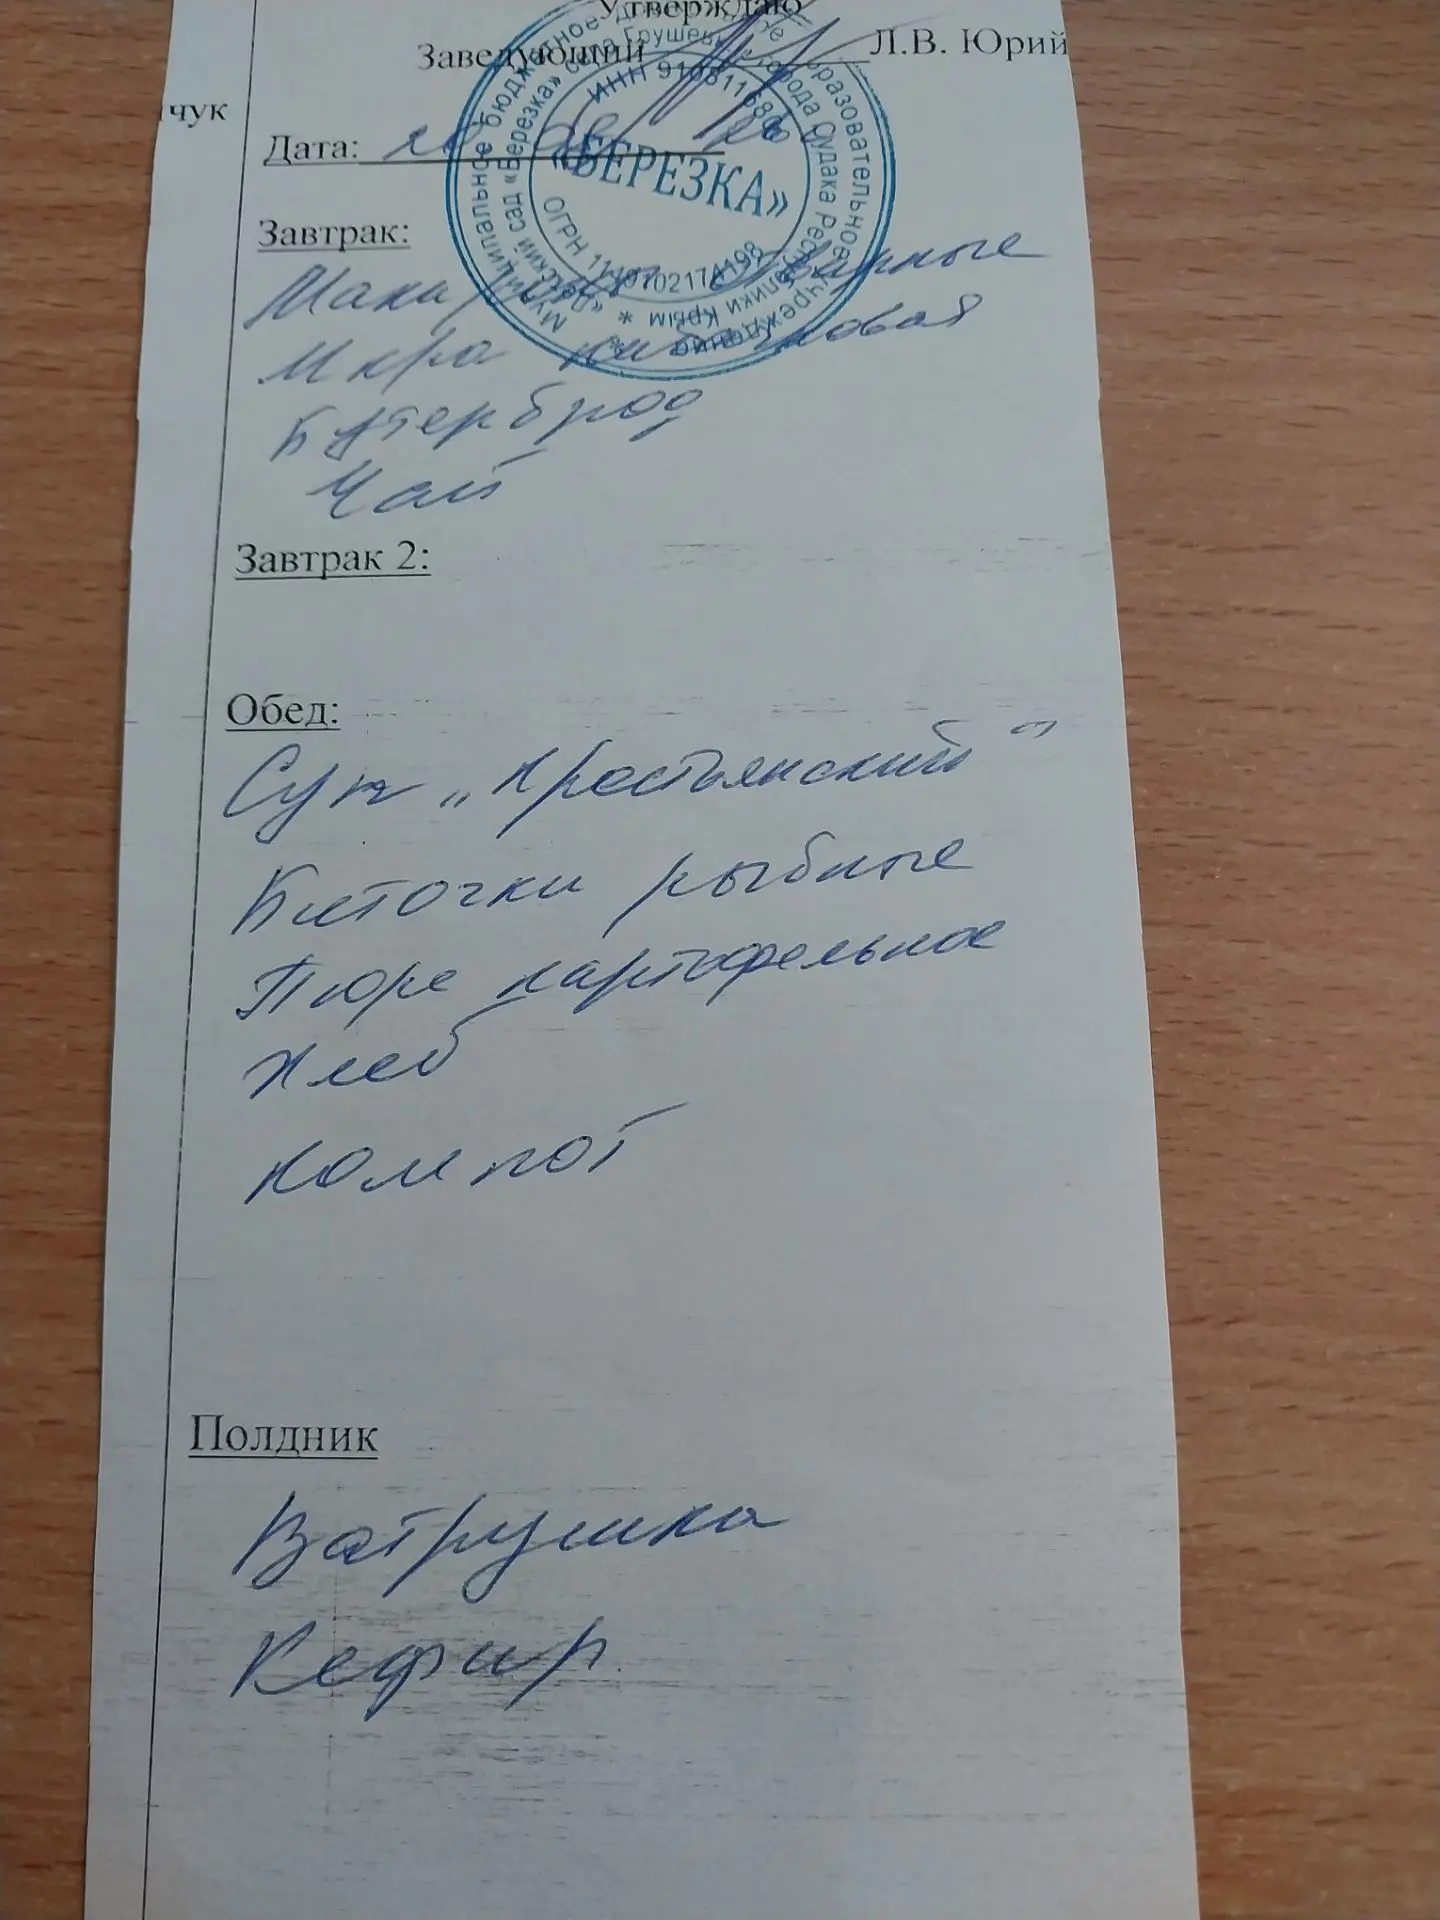 Утверждаю
Заведующий Л.В. Юрий
чук
Дата:
Муниципальное бюджетное дошкольное образовательное учреждение
«Детский сад «Березка» села Грушевка города Судака Республики Крым
ИНН 9108116806
«БЕРЕЗКА»
ОГРН
Завтрак:
Макароны отварные
Икра кабачковая
Бутерброд
Чай
Завтрак 2:
Обед:
Суп „Крестьянский“
Биточки рыбные
Пюре картофельное
Хлеб
компот
Полдник
Ватрушка
Кефир